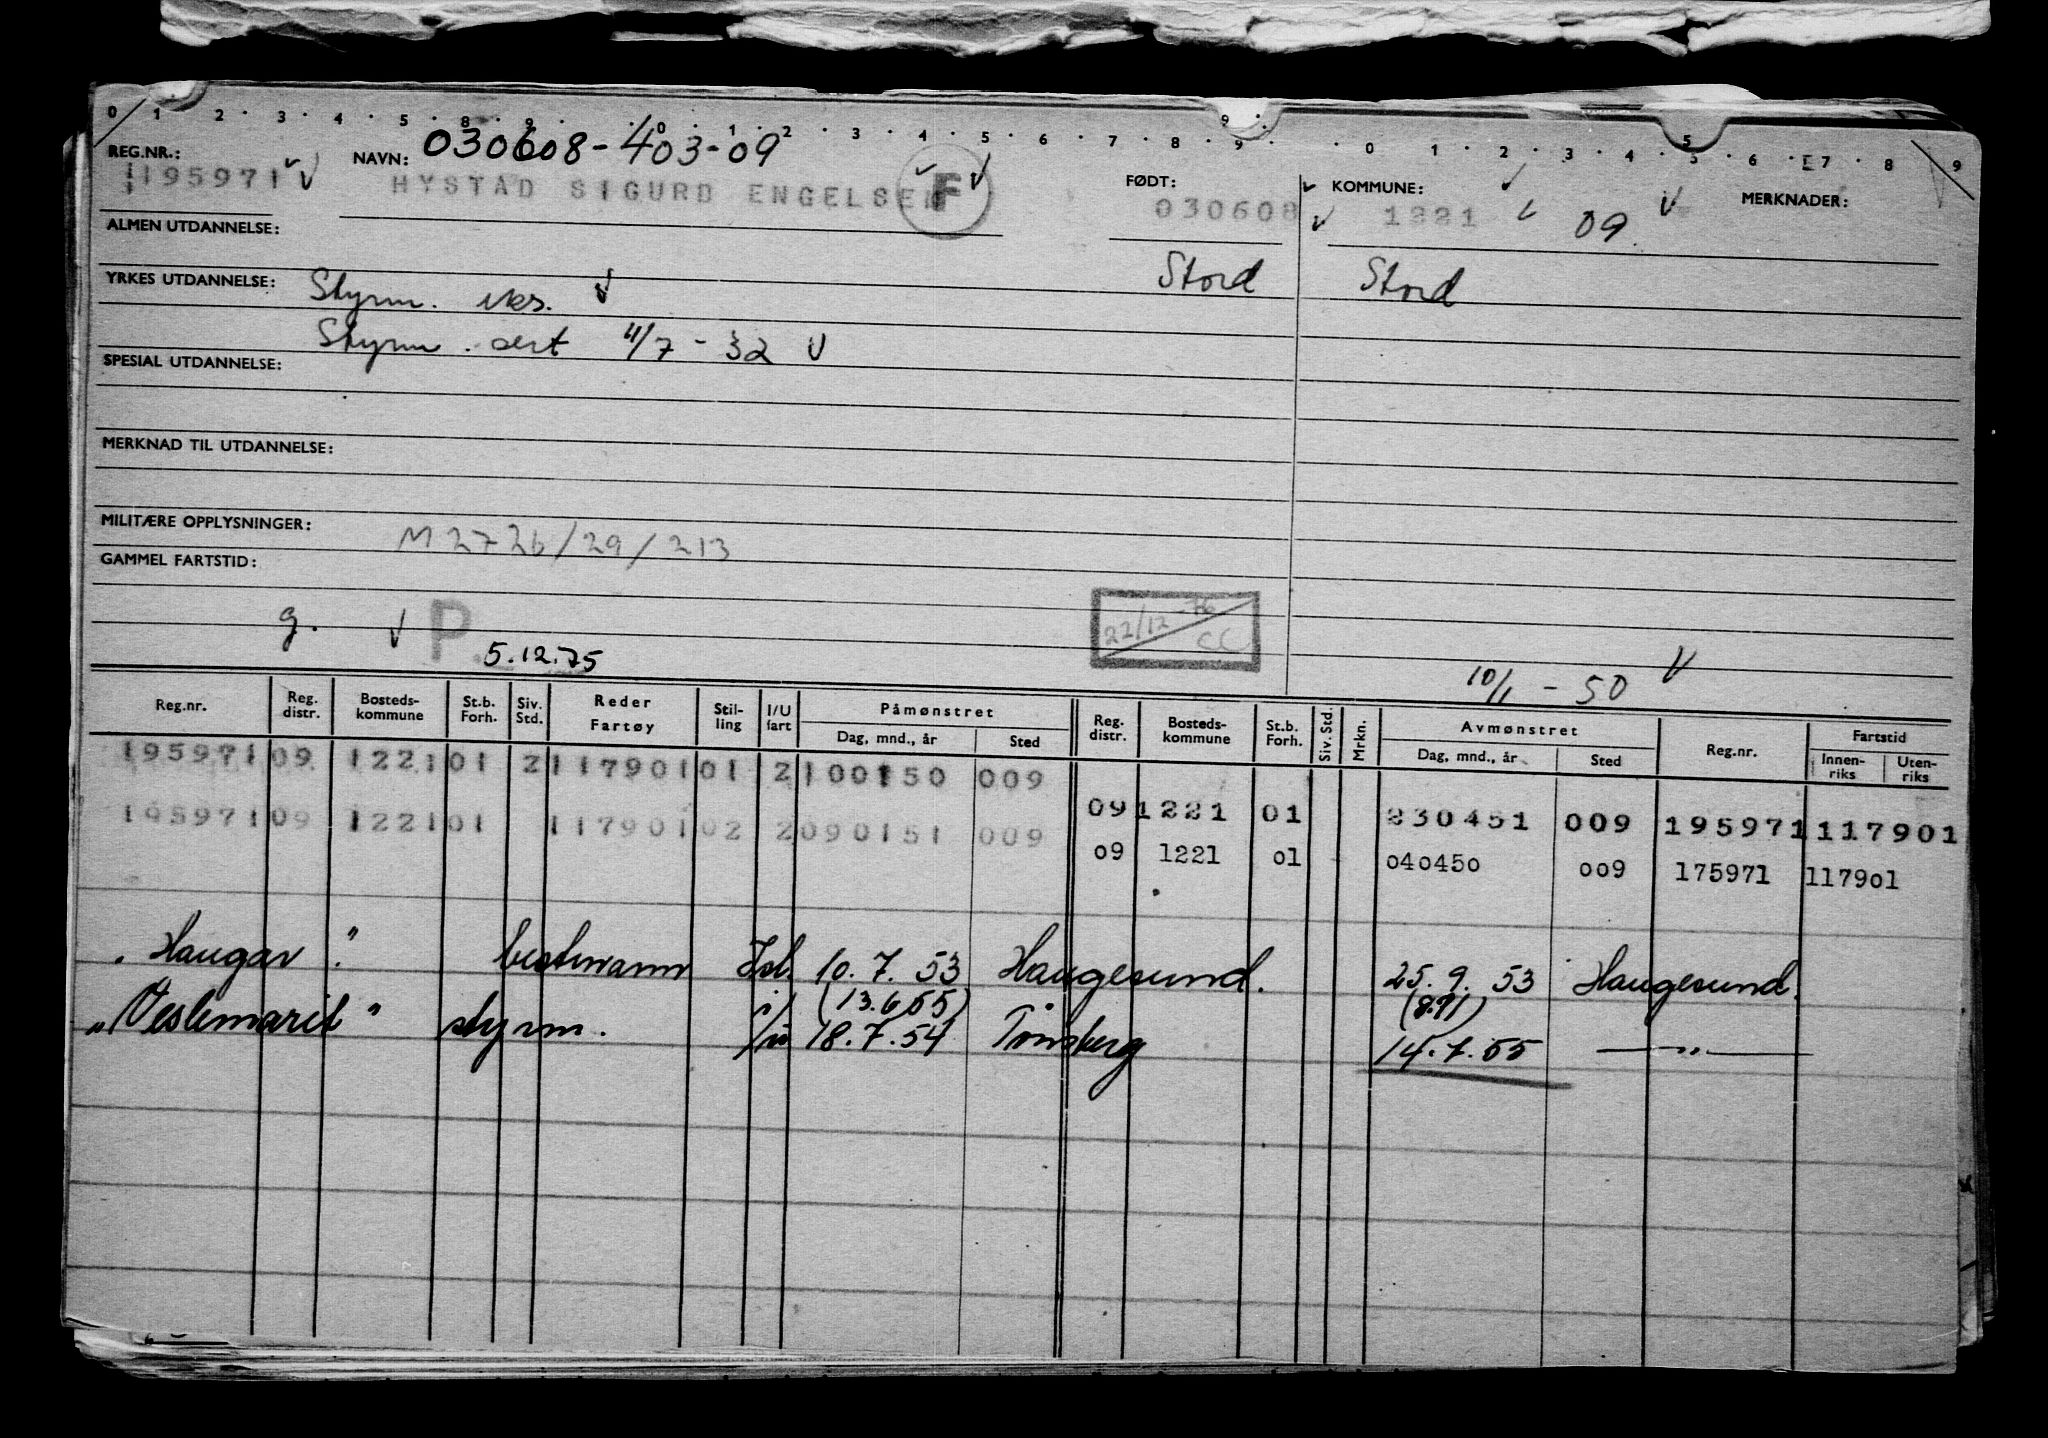 0 1 2 3 4 5 8 9 0 1 2 3 4 5 6 7 8 9 0 1 2 3 4 5 6 7 8 9
REG.NR.: NAVN: 030608-403-09 FØDT: KOMMUNE: MERKNADER:
195971 HYSTAD SIGURD ENGELSEN F 030608 1221 09
ALMEN UTDANNELSE:
YRKES UTDANNELSE: Styrm. eks. Stord Stord
Styrm. sert 4/7-32
SPESIAL UTDANNELSE:
MERKNAD TIL UTDANNELSE:
MILITÆRE OPPLYSNINGER: M 2726/29/213
GAMMEL FARTSTID:
g. P. 5.12.75 22/12-76 CC
10/1-50
Reg.nr. Reg. distr. Bosteds-kommune St.b. Forh. Siv. Std. Reder Fartøy Stil-ling I/U fart Påmønstret Dag, mnd., år Sted Reg. distr. Bosteds-kommune St.b. Forh. Siv. Std. Mrkn. Avmønstret Dag, mnd., år Sted Reg.nr. Fartstid Innen-riks Uten-riks
195971 09 1221 01 2 117901 01 2 100150 009
09 1221 01 230451 009 195971 117901
195971 09 1221 01 117901 02 2 090151 009
09 1221 01 040450 009 175971 117901
"Haugar" bestmann Isl. 10.7.53 Haugesund. 25.9.53 Haugesund.
(13.6.55) (8.71)
"Veslemarit" styrm. i/u 18.7.54 Tønsberg 14.7.55 —"—